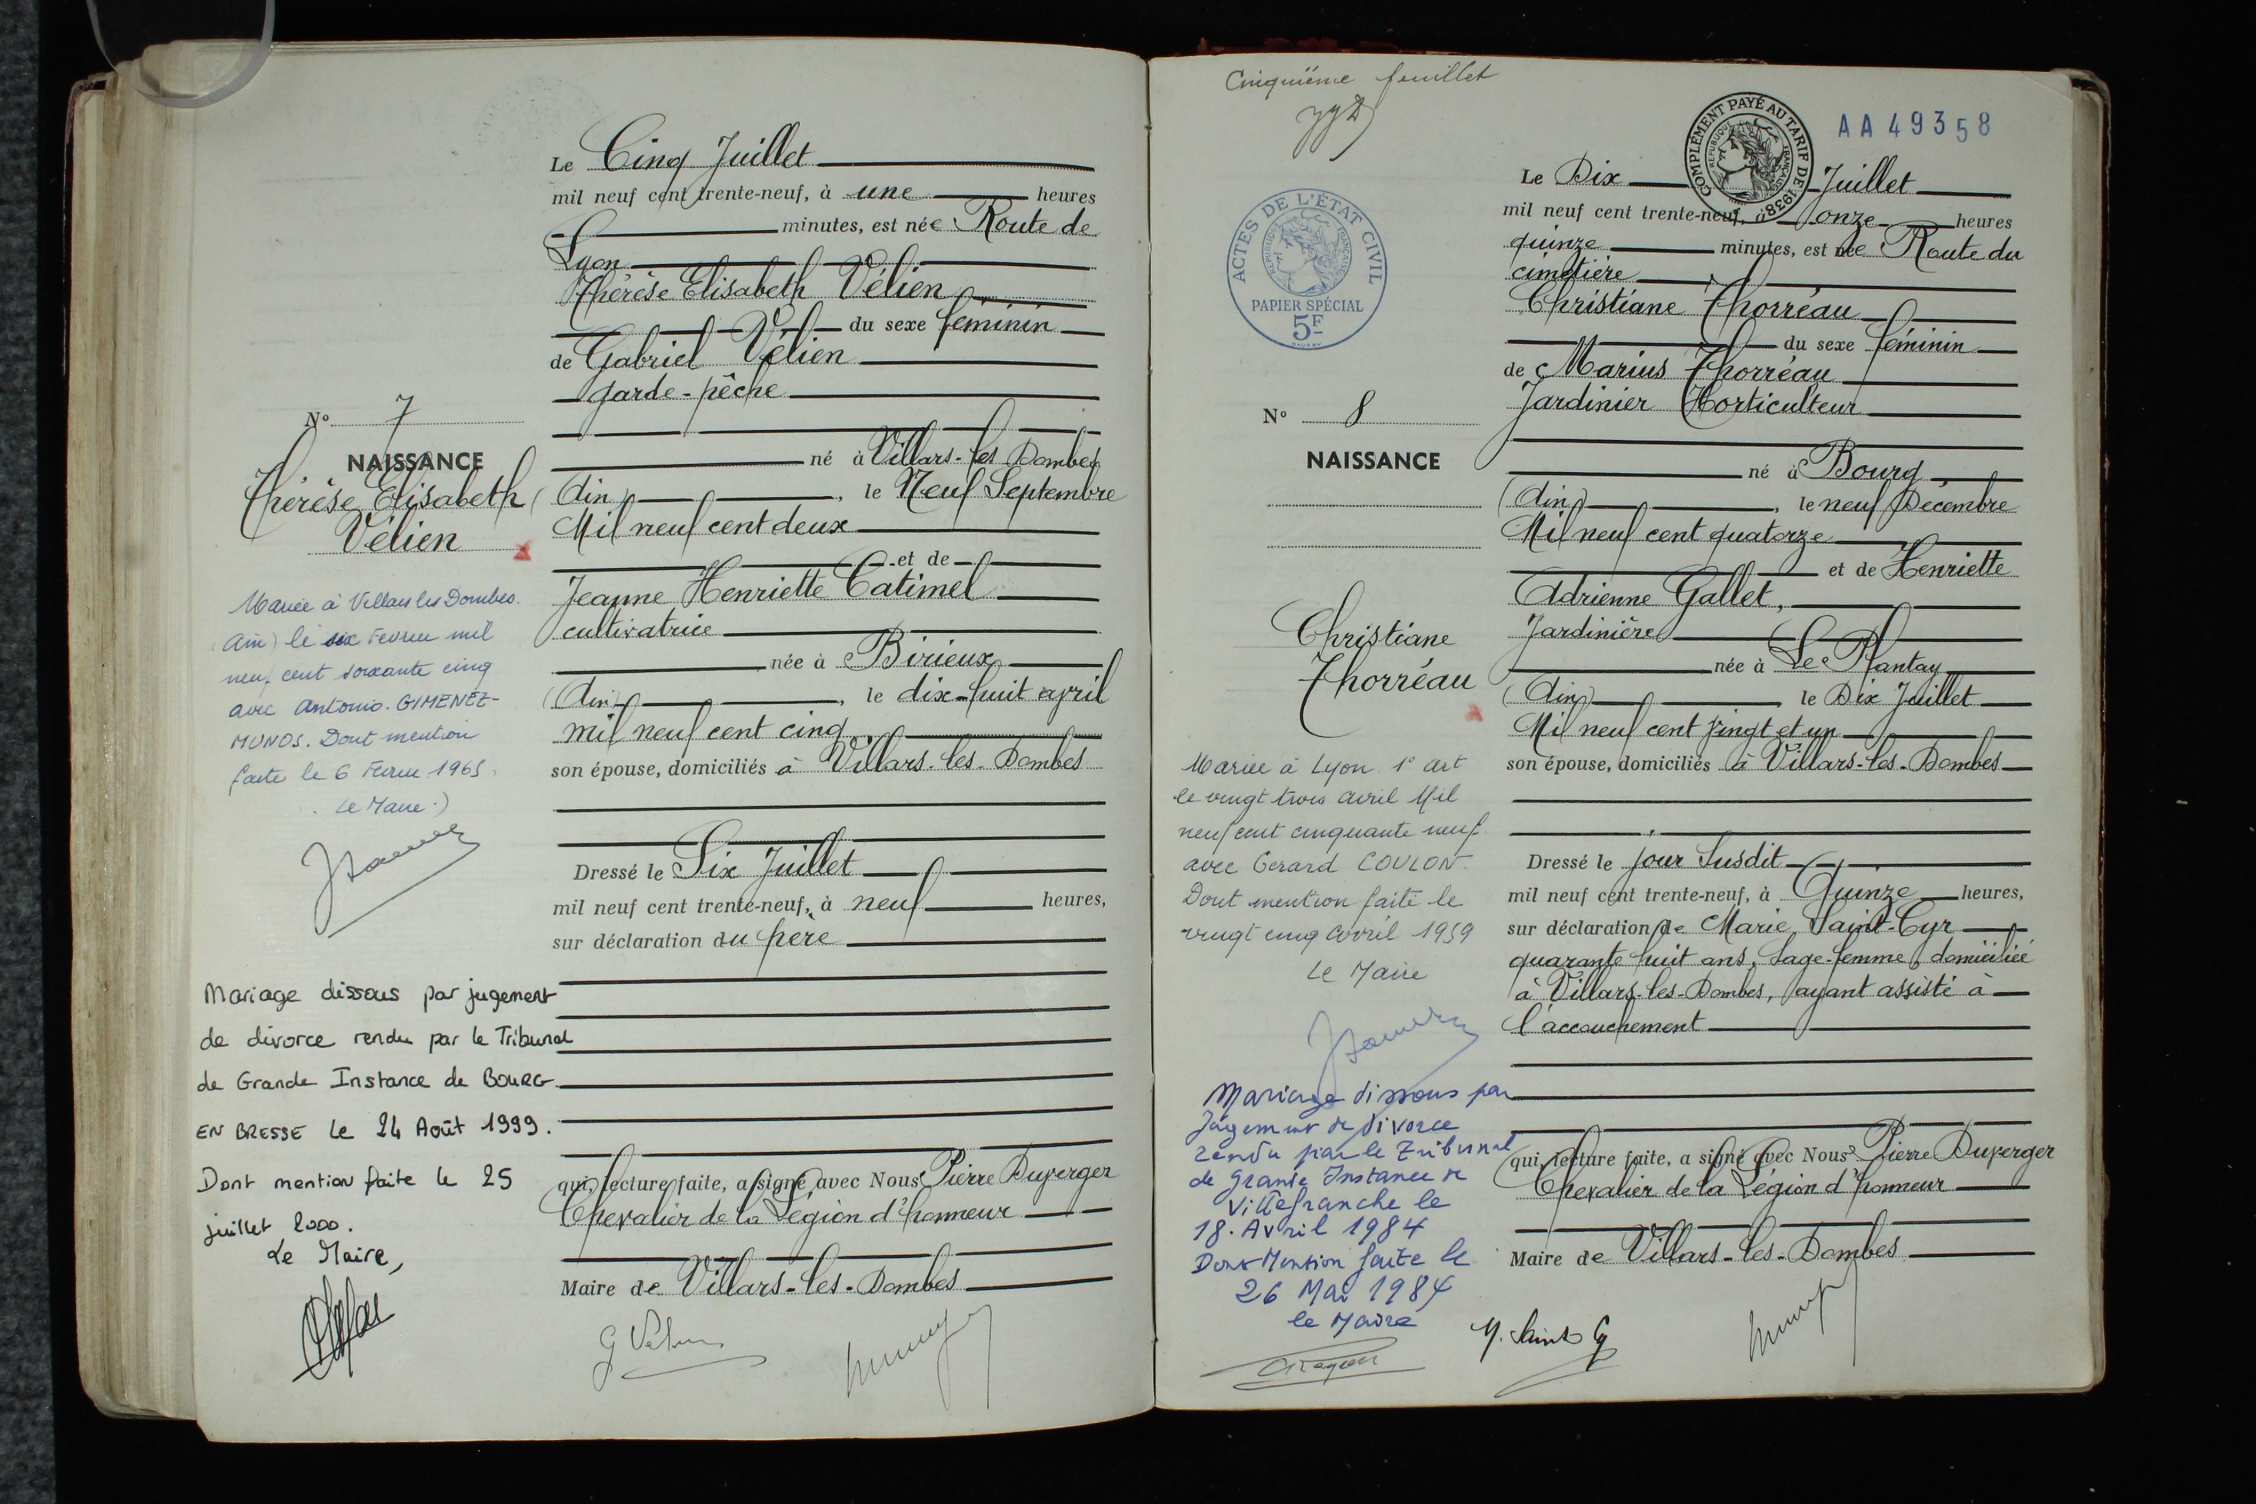 Le Cinq Juillet
mil neuf cent trente-neuf, à une heures
minutes, est née Route de
Lyon
Thérèse Elisabeth Vélien
du sexe féminin
de Gabriel Vélien
garde-pêche
né à Villars-les Dombes
(Ain), le Neuf Septembre
Mil neuf cent deux
et de
Jeanne Henriette Catimel
cultivatrice
née à Birieux
(Ain), le dix-huit april
mil neuf cent cinq
son épouse, domiciliés à Villars-les-Dombes
Dressé le Six Juillet
mil neuf cent trente-neuf, à neuf heures,
sur déclaration du père
qui, lecture faite, a signé avec Nous Pierre Duverger
Chevalier de la Légion d'honneur
Maire de Villars-les-Dombes
N° 7
NAISSANCE
Thérèse Elisabeth
Vélien
Mariée à Villars les Dombes
(Ain) le six Fevrier mil
neuf cent soixante cinq
avec Antonio GIMENEZ-
MUNOS. Dont mention
faite le 6 Fevrier 1965.
Le Maire
Mariage dissous par jugement
de divorce rendu par le Tribunal
de Grande Instance de BOURG
EN BRESSE le 24 Août 1999.
Dont mention faite le 25
juillet 2000.
Le Maire,
Cinquième feuillet
COMPLÉMENT PAYÉ AU TARIF DE 1938
RÉPUBLIQUE FRANÇAISE
AA 49358
ACTES DE L'ÉTAT CIVIL
RÉPUBLIQUE FRANÇAISE
PAPIER SPÉCIAL
5F
Le Dix Juillet
mil neuf cent trente-neuf, à onze heures
quinze minutes, est née Route du
cimetière
Christiane Thorréau
du sexe féminin
de Marius Thorréau
Jardinier Horticulteur
né à Bourg
(Ain), le neuf Décembre
Mil neuf cent quatorze
et de Henriette
Adrienne Gallet,
Jardinière
née à Le Plantay
(Ain) le Dix Juillet
Mil neuf cent vingt et un
son épouse, domiciliés à Villars-les-Dombes
Dressé le jour Susdit
mil neuf cent trente-neuf, à Quinze heures,
sur déclaration de Marie Saint-Cyr
quarante huit ans, Sage-femme, domiciliée
à Villars-les-Dombes, ayant assisté à
l'accouchement
qui, lecture faite, a signé avec Nous Pierre Duverger
Chevalier de la Légion d'honneur
Maire de Villars-les-Dombes
M. Saint Cy
N° 8
NAISSANCE
Christiane
Thorréau
Mariée à Lyon 1° art
le vingt trois avril Mil
neuf cent cinquante neuf
avec Gerard COULON
Dont mention faite le
vingt cinq avril 1959
Le Maire
Mariage dissous par
Jugement de divorce
rendu par le Tribunal
de Grande Instance de
Villefranche le
18. Avril 1984
Dont Mention faite le
26 Mai 1984
le Maire